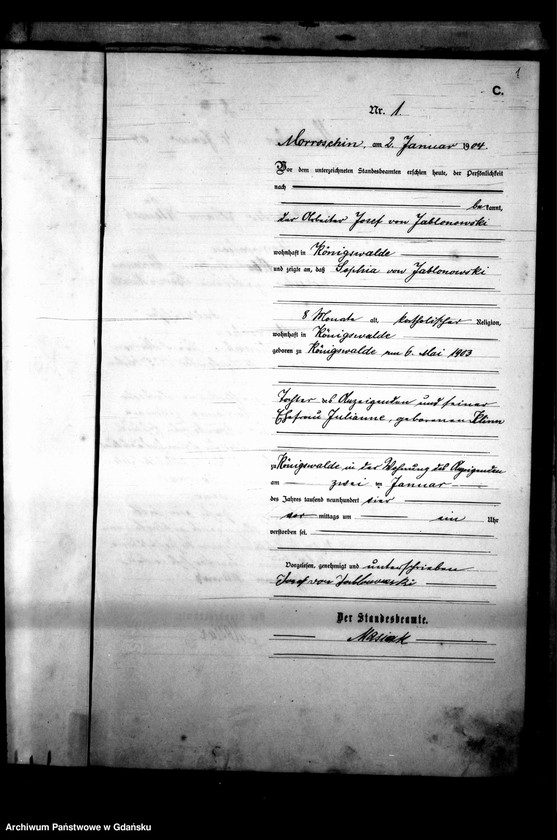 1
C.
Nr. 1.
Morroschin, am 2. Januar 1904.
Vor dem unterzeichneten Standesbeamten erschien heute, der Persönlichkeit
nach
bekannt,
der Arbeiter Josef von Jablonowski
wohnhaft in Königswalde
und zeigte an, daß Sophia von Jablonowski
8 Monate alt, katholischer Religion,
wohnhaft in Königswalde
geboren zu Königswalde am 6. Mai 1903
Tochter des Anzeigenden und seiner
Ehefrau Julianne, geborenen Klinn
zu Königswalde in der Wohnung des Anzeigenden
am zwei ten Januar
des Jahres tausend neunhundert vier
vor mittags um ein Uhr
verstorben sei.
Vorgelesen, genehmigt und unterschrieben
Josef von Jablonowski
Der Standesbeamte.
Archiwum Państwowe w Gdańsku